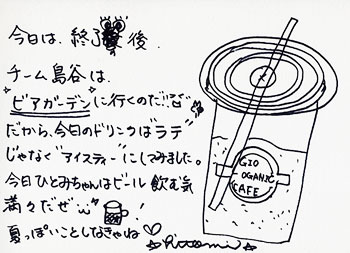 今日は、終了後、
チーム島谷は、
"ビアガーデン"に行くのだ!!
だから、今日のドリンクは"ラテ"
じゃなく"アイスティー"にしてみました。
今日ひとみちゃんはビール飲む気
満々だぜ!
夏っぽいことしなきゃね
Hitomi
GIO
OGANIC
CAFE